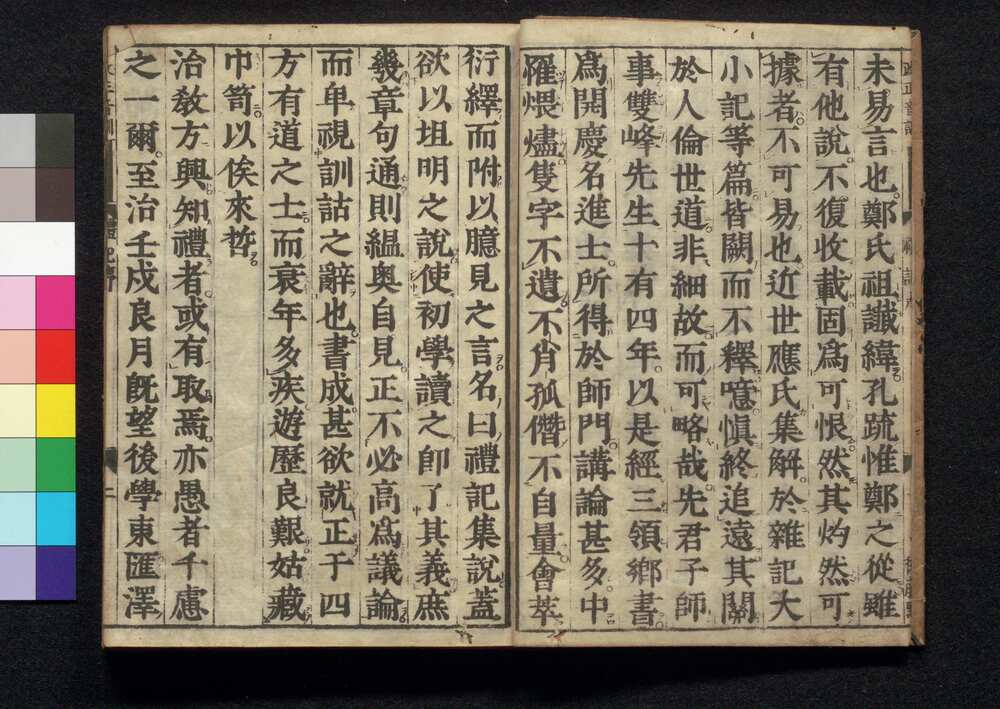 未易言也鄭氏祖讖緯孔疏惟鄭之從雖
有他說不復收載固爲可恨然其灼然可
據者不可易也近世應氏集解於雜記大
小記等篇皆闕而不釋噫愼終追遠其關
於人倫世道非細故而可略哉先君子師
事雙峰先生十有四年以是經三領鄉書
爲開慶名進士所得於師門講論甚多中
罹煨燼隻字不遺不肖孤僭不自量會萃
衍繹而附以臆見之言名曰禮記集說蓋
欲以坦明之說使初學讀之卽了其義庶
幾章句通則緼奥自見正不必高爲議論
而卑視訓詁之辭也書成甚欲就正于四
方有道之士而衰年多疾遊歷良艱姑藏
巾笥以俟來哲
治教方興知禮者或有取焉亦愚者千慮
之一爾至治壬戌良月旣望後學東匯澤